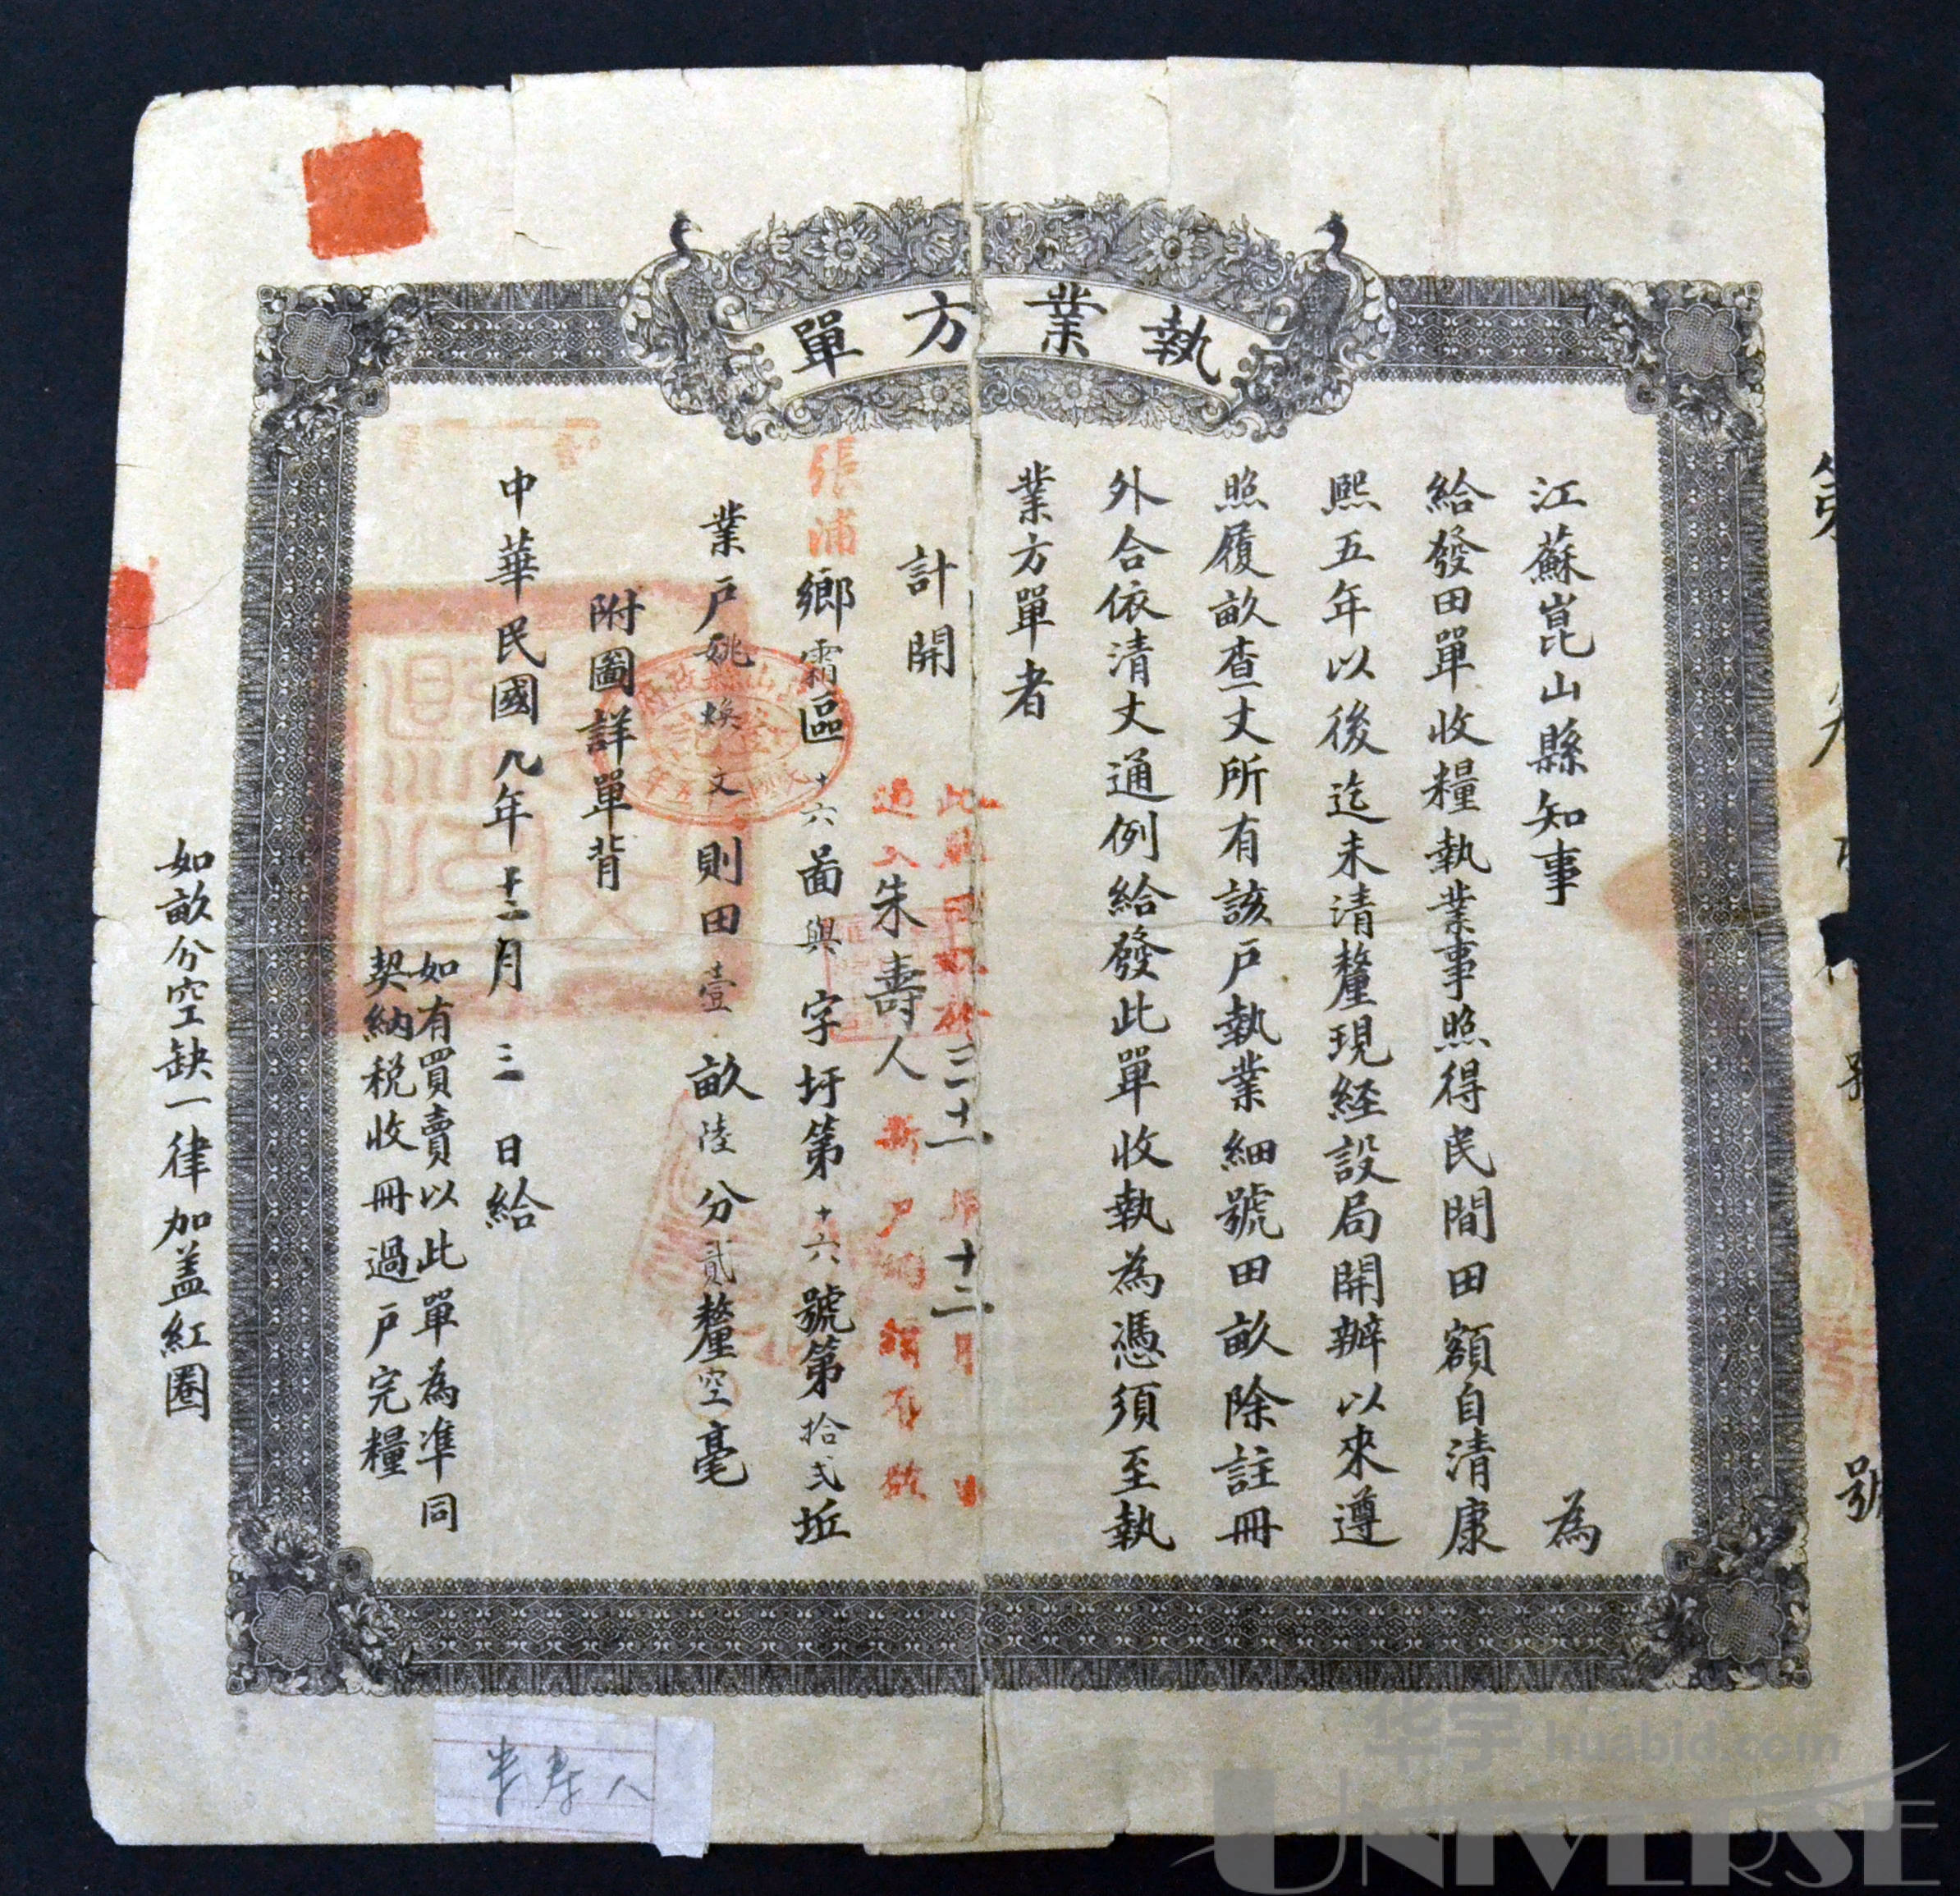 執業方單
江蘇崑山縣知事 為
給發田單收糧執業事照得民間田額自清康
熙五年以後迄未清釐現経設局開辦以來遵
照履畝查丈所有該戶執業細號田畝除註冊
外合依清丈通例給發此單收執為憑須至執
業方單者
計開
此 田 於三十一年十二月 日
過入朱壽人新戶
張浦鄉霜區十六啚與字圩第十六號第拾弍坵
業戶姚煥文則田壹畝陸分貳釐空毫
附圖詳單背
中華民國九年十二月三日給
如有買賣以此單為準同
契納稅收冊過戶完糧
如畝分空缺一律加盖紅圈
號
朱寿人
华宇 huabid.com
UNIVERSE